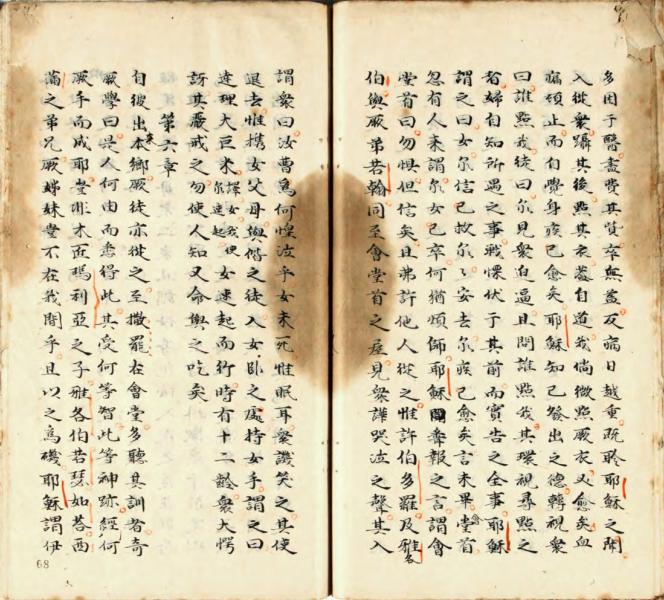 多困于醫盡費其貲卒無益反病日越重既聆耶穌之聞
入從衆躡其後點其衣蓋自道我倘微點厥衣必愈矣血
病頓止而自覺身疾已愈矣耶穌知己發出之德轉視衆
曰誰點我徒曰尔見衆迫逼且問誰點我其環視尋點之
者婦自知所遇之事戰慄伏于其前而實告之全事耶穌
謂之曰女尔信已救尔々安去尔疾已愈矣言未畢會堂首
忽有人來謂尔女已卒何猶煩師耶穌聞奔報之言謂會
堂首曰勿懼但信矣且弗許他人從之惟許伯多羅及雅各
伯與厥弟若翰同至會堂首之屋見衆譁哭泣之聲其入
謂衆曰汝曹爲何惶泣乎女未死惟眠耳衆譏笑之其使
退去惟携女父母與偕之徒入女卧之處持女手謂之曰
達理大巨米譯女我使尔速起女速起而行時有十二齡衆大愕
訝其嚴戒之勿使人知又命與之吃矣
第六章
自彼出來本鄉厥徒亦從之至撒罷在會堂多聽其訓者奇
厥學曰此人何由而悉得此其受何等智此等神跡經何
厥手而成耶豈非木匠瑪利亞之子雅各伯若瑟如荅西
滿之弟兄厥姊妹豈不在我間乎且以之爲磯耶穌謂伊
68